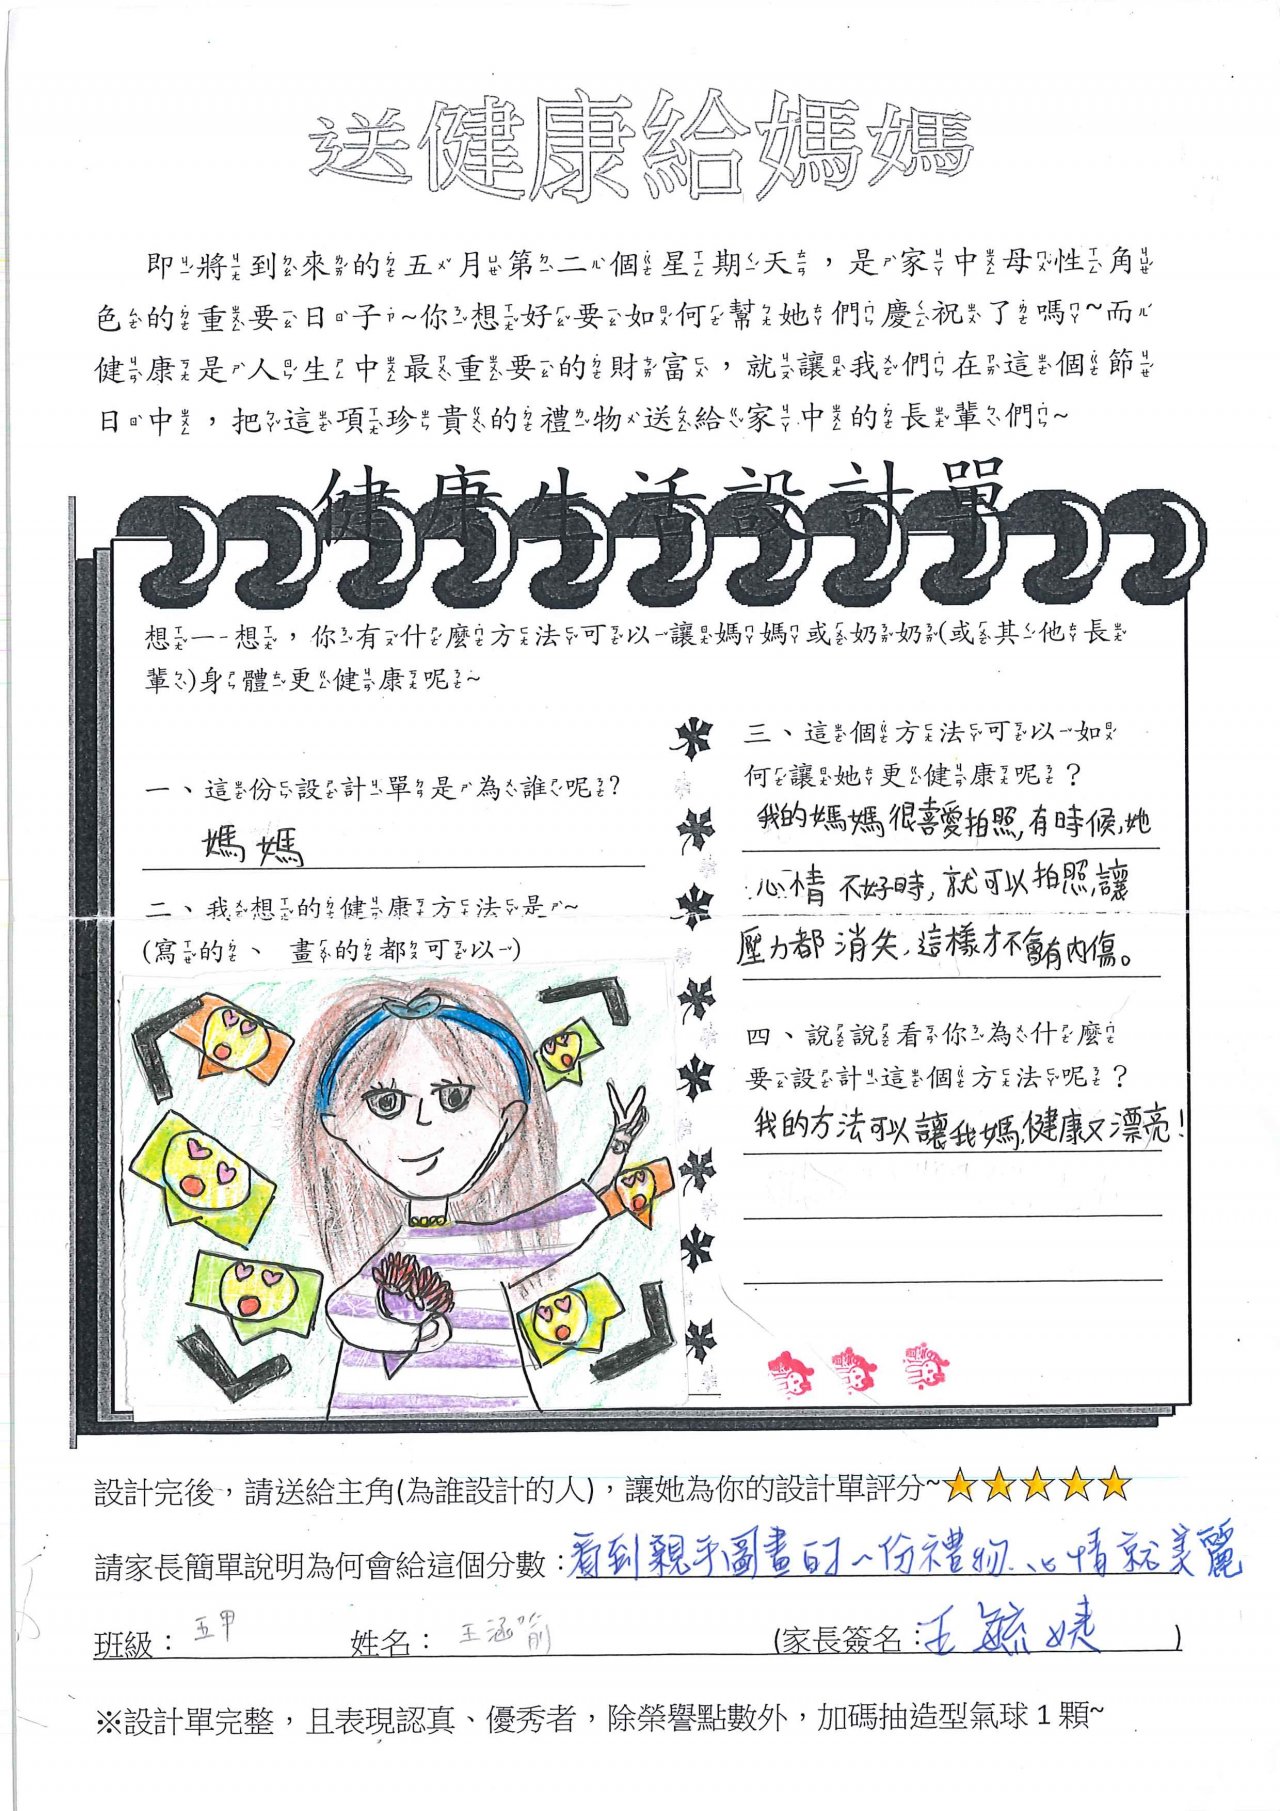 送健康給媽媽
即將到來的五月第二個星期天，是家中母性角
色的重要日子~你想好要如何幫她們慶祝了嗎~而
健康是人生中最重要的財富，就讓我們在這個節
日中，把這項珍貴的禮物送給家中的長輩們~
健康生活設計單
想一想，你有什麼方法可以讓媽媽或奶奶(或其他長
輩)身體更健康呢~
一、這份設計單是為誰呢？
媽媽
二、我想的健康方法是~
(寫的、畫的都可以)
三、這個方法可以如
何讓她更健康呢？
我的媽媽很喜愛拍照,有時候,她
心情不好時,就可以拍照,讓
壓力都消失,這樣才不會有內傷。
四、說說看你為什麼
要設計這個方法呢？
我的方法可以讓我媽健康又漂亮！
設計完後，請送給主角(為誰設計的人)，讓她為你的設計單評分~★★★★★
請家長簡單說明為何會給這個分數：看到親手圖畫的一份禮物、心情就美麗
班級：五甲 姓名：王涵箭 (家長簽名：王毓婕)
※設計單完整，且表現認真、優秀者，除榮譽點數外，加碼抽造型氣球1顆~